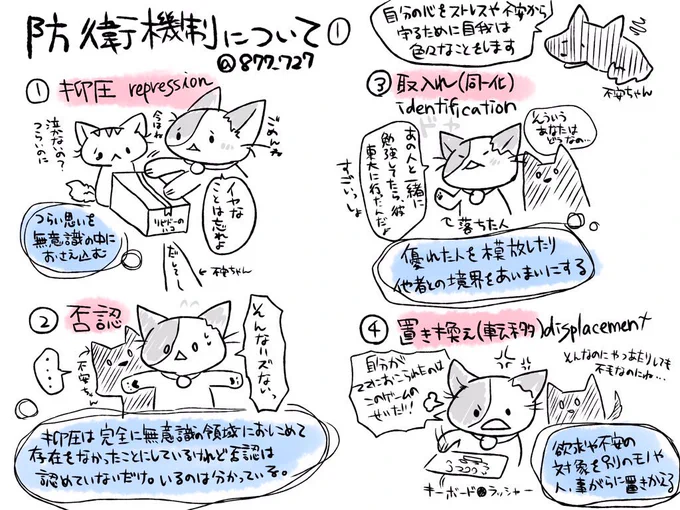 防衛機制について①
@877_727
自分の心をストレスや不安から
守るために自我は
色々なことをします
不安ちゃん
① 抑圧 repression
泣かないの?
つらいのに
今はね
ごめんね
イヤな
ことは忘れよ
リビドーの
ハコ
だして〜
←不安ちゃん
つらい思いを
無意識の中に
おさえ込む
② 否認
・・・
←不安ちゃん
そんなハズない、
抑圧は完全に無意識の領域におしこめて
存在をなかったことにしているけれど否認は
認めていないだけ。いるのは分かっている。
③ 取入れ(同一化)
identification
ドヤ
あの人と一緒に
勉強してたら、彼
東大に行ったんだよ
すごいっしょ
そういう
あなたは
どうなの…
落ちた人
優れた人を模放したり
他者との境界をあいまいにする
④ 置き換え(転移)displacement
自分が
ママにおこられたのは
このゲームの
せいだ!!
そんなのにやつあたりしても
不毛なのにね…
キーボードクラッシャー
欲求や不安の
対象を別のモノや
人、事がらに置きかえる